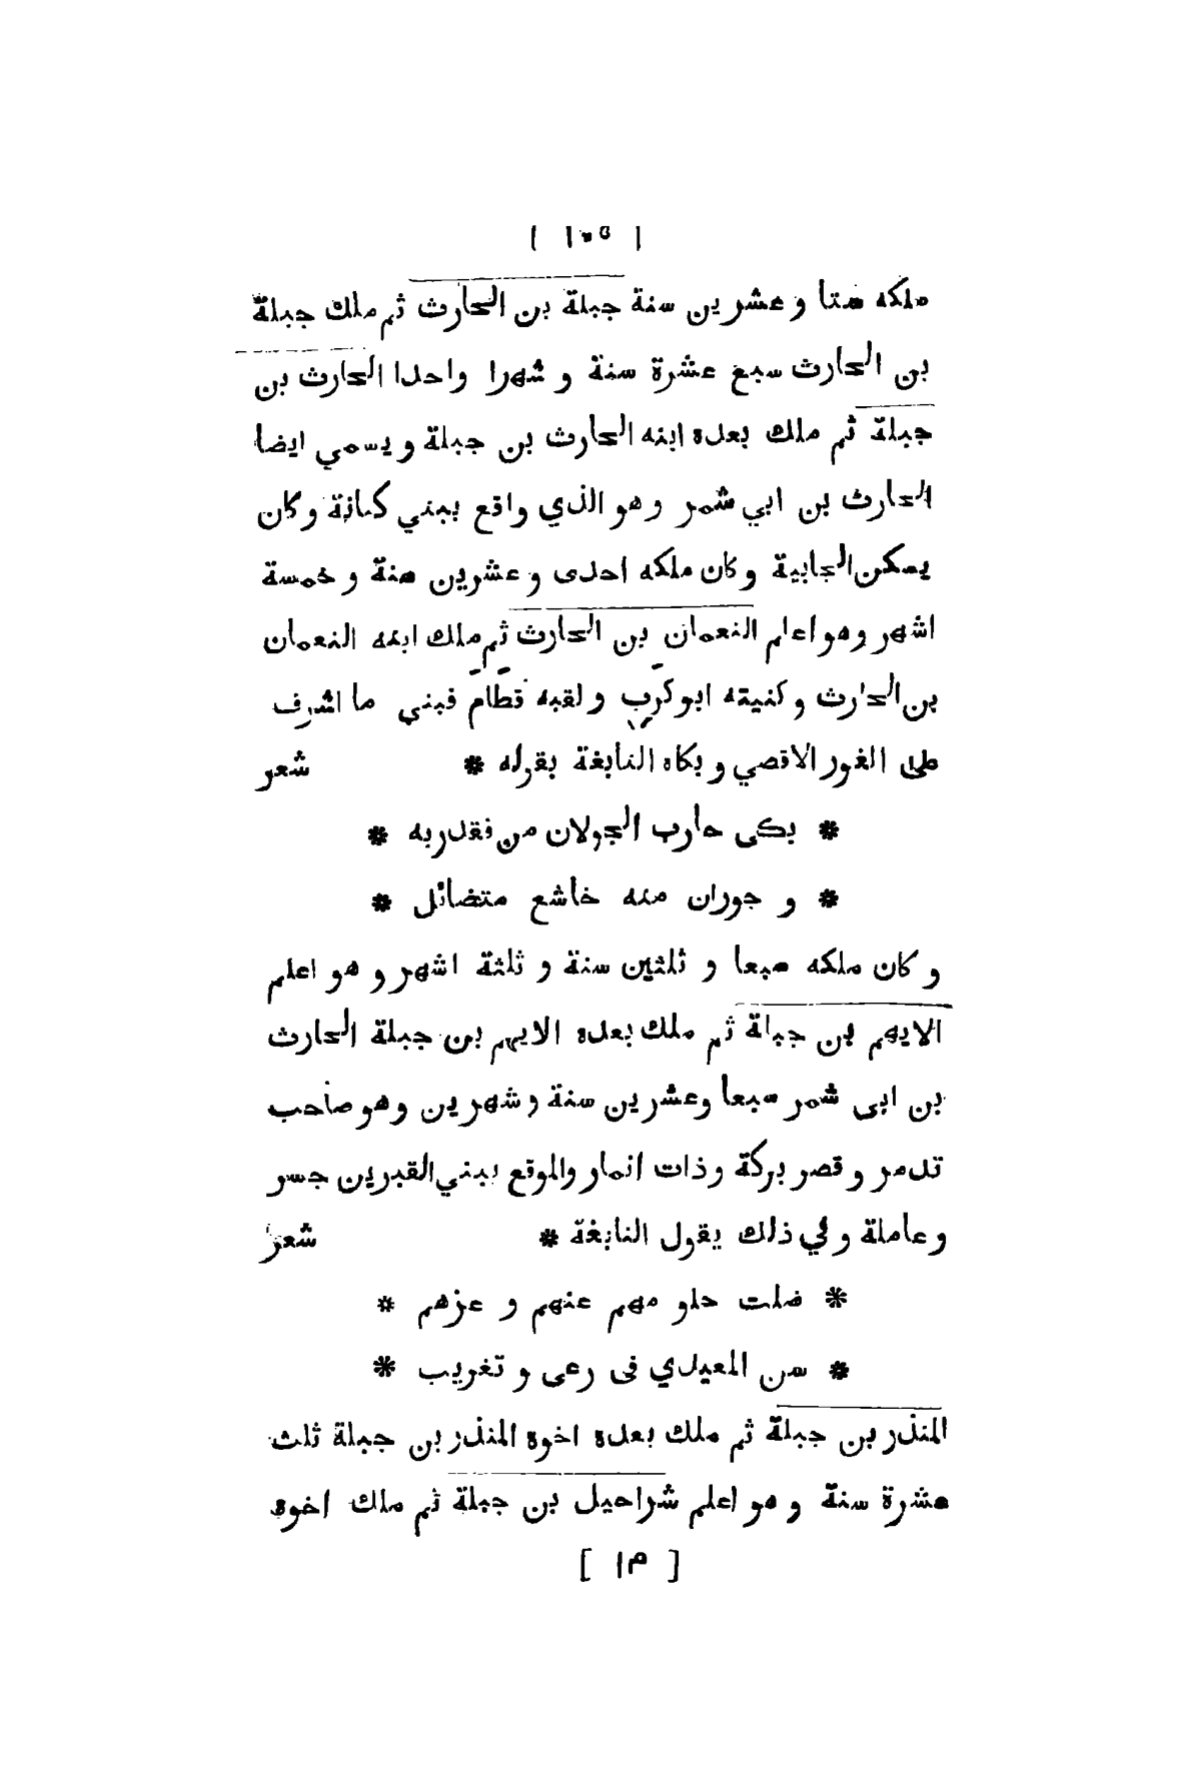 [ ١٠٥ ]
ملكه ستا و عشرين سنة جبلة بن الحارث ثم ملك جبلة
بن الحارث سبع عشرة سنة و شهرا واحدا الحارث بن
جبلة ثم ملك بعده ابنه الحارث بن جبلة و يسمي ايضا
الحارث بن ابي شمر وهو الذي واقع ببني كنانة وكان
يسكن الجابية وكان ملكه احدى وعشرين سنة وخمسة
اشهر وهو اعلم النعمان بن الحارث ثم ملك ابنه النعمان
بن الحارث وكنيته ابو كرب ولقبه قطام فبني ما اشرف
على الغور الاقصي و بكاه النابغة بقوله * شعر
* بكى حارب الجولان من فقد ربه *
* و جوران منه خاشع متضائل *
وكان ملكه سبعا و ثلثين سنة و ثلثة اشهر و هو اعلم
الايهم بن جبلة ثم ملك بعده الايهم بن جبلة الحارث
بن ابى شمر سبعا وعشرين سنة وشهرين وهو صاحب
تدمر و قصر بركة وذات انمار والموقع ببني القبرين جسر
وعاملة وفي ذلك يقول النابغة * شعر
* ضلت حلو مهم عنهم و عزهم *
* سن المعيدي فى رعى و تغريب *
المنذر بن جبلة ثم ملك بعده اخوه المنذر بن جبلة ثلث
عشرة سنة و هو اعلم شراحيل بن جبلة ثم ملك اخوه
[ ١٣ ]